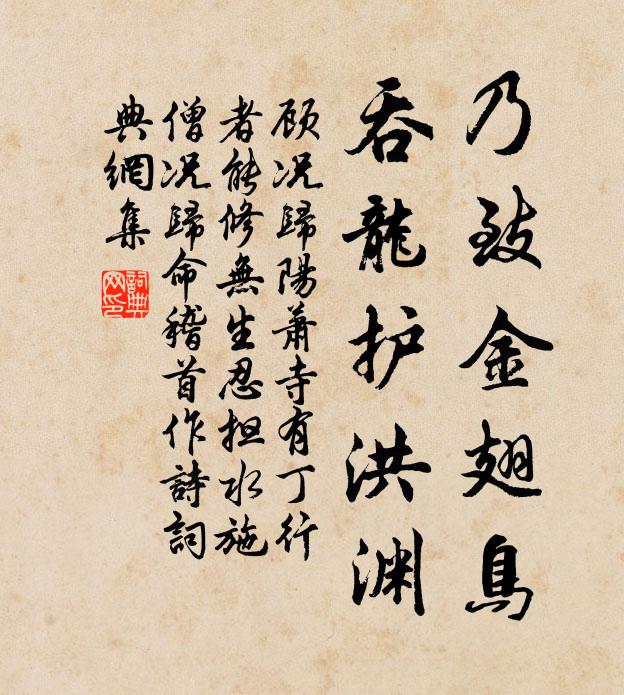 乃致金翅鸟
吞龍护洪渊
顾况歸陽萧寺有丁行
者能修無生忍担水施
僧况歸命稽首作詩詞
典網集
詞典
网印